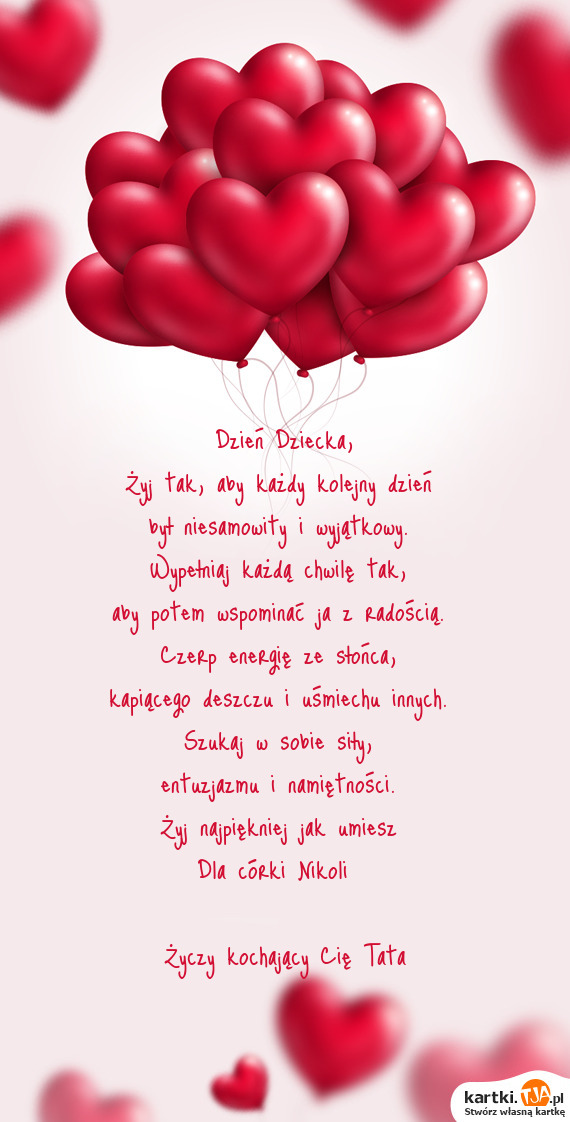 Dzień Dziecka,
Żyj tak, aby każdy kolejny dzień
był niesamowity i wyjątkowy.
Wypełniaj każdą chwilę tak,
aby potem wspominać ja z radością.
Czerp energię ze słońca,
kapiącego deszczu i uśmiechu innych.
Szukaj w sobie siły,
entuzjazmu i namiętności.
Żyj najpiękniej jak umiesz
Dla córki Nikoli
Życzy kochający Cię Tata
kartki.TJA.pl
Stwórz własną kartkę